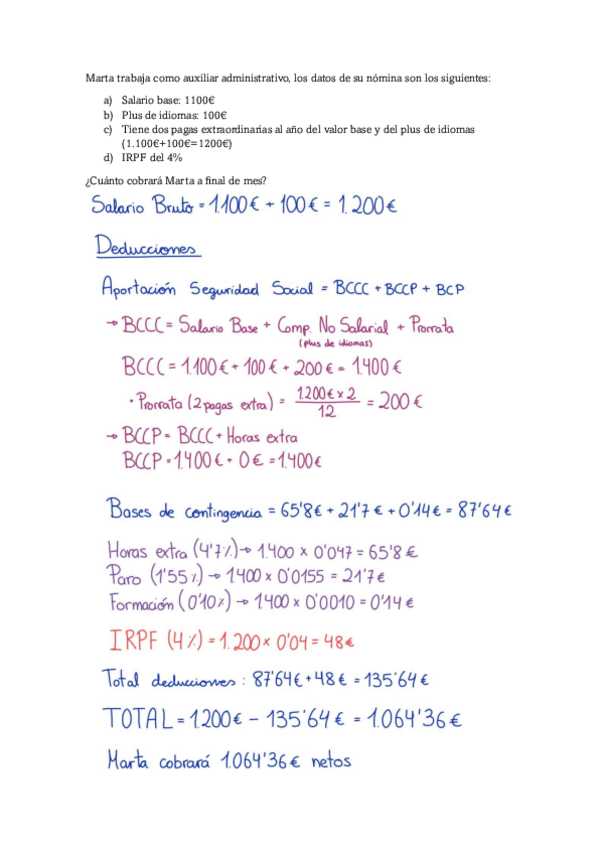 Marta trabaja como auxiliar administrativo, los datos de su nómina son los siguientes:
a) Salario base: 1100€
b) Plus de idiomas: 100€
c) Tiene dos pagas extraordinarias al año del valor base y del plus de idiomas
(1.100€+100€=1200€)
d) IRPF del 4%
¿Cuánto cobrará Marta a final de mes?
Salario Bruto = 1.100€ + 100€ = 1.200€
Deducciones
Aportación Seguridad Social = BCCC + BCCP + BCP
→ BCCC = Salario Base + Comp. No Salarial + Prorrata
(plus de idiomas)
BCCC = 1.100€ + 100€ + 200€ = 1.400€
• Prorrata (2 pagas extra) = 1.200€ x 2 / 12 = 200€
→ BCCP = BCCC + Horas extra
BCCP = 1.400€ + 0€ = 1.400€
Bases de contingencia = 65'8€ + 21'7€ + 0'14€ = 87'64€
Horas extra (4'7%) → 1.400 x 0'047 = 65'8€
Paro (1'55%) → 1.400 x 0'0155 = 21'7€
Formación (0'10%) → 1.400 x 0'0010 = 0'14€
IRPF (4%) = 1.200 x 0'04 = 48€
Total deducciones: 87'64€ + 48€ = 135'64€
TOTAL = 1.200€ - 135'64€ = 1.064'36€
Marta cobrará 1.064'36€ netos